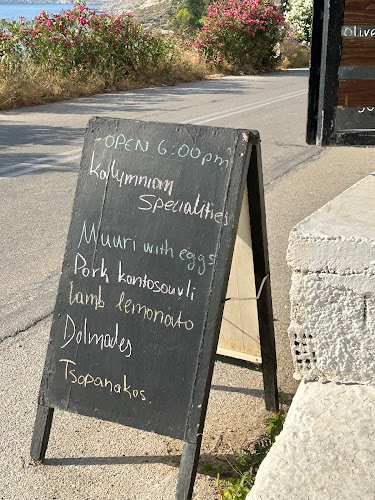 OPEN 6:00pm
Kalymnian
Specialities
Muuri with eggs
Pork kontosouvli
lamb lemonato
Dolmades
Tsopanakos.
olive